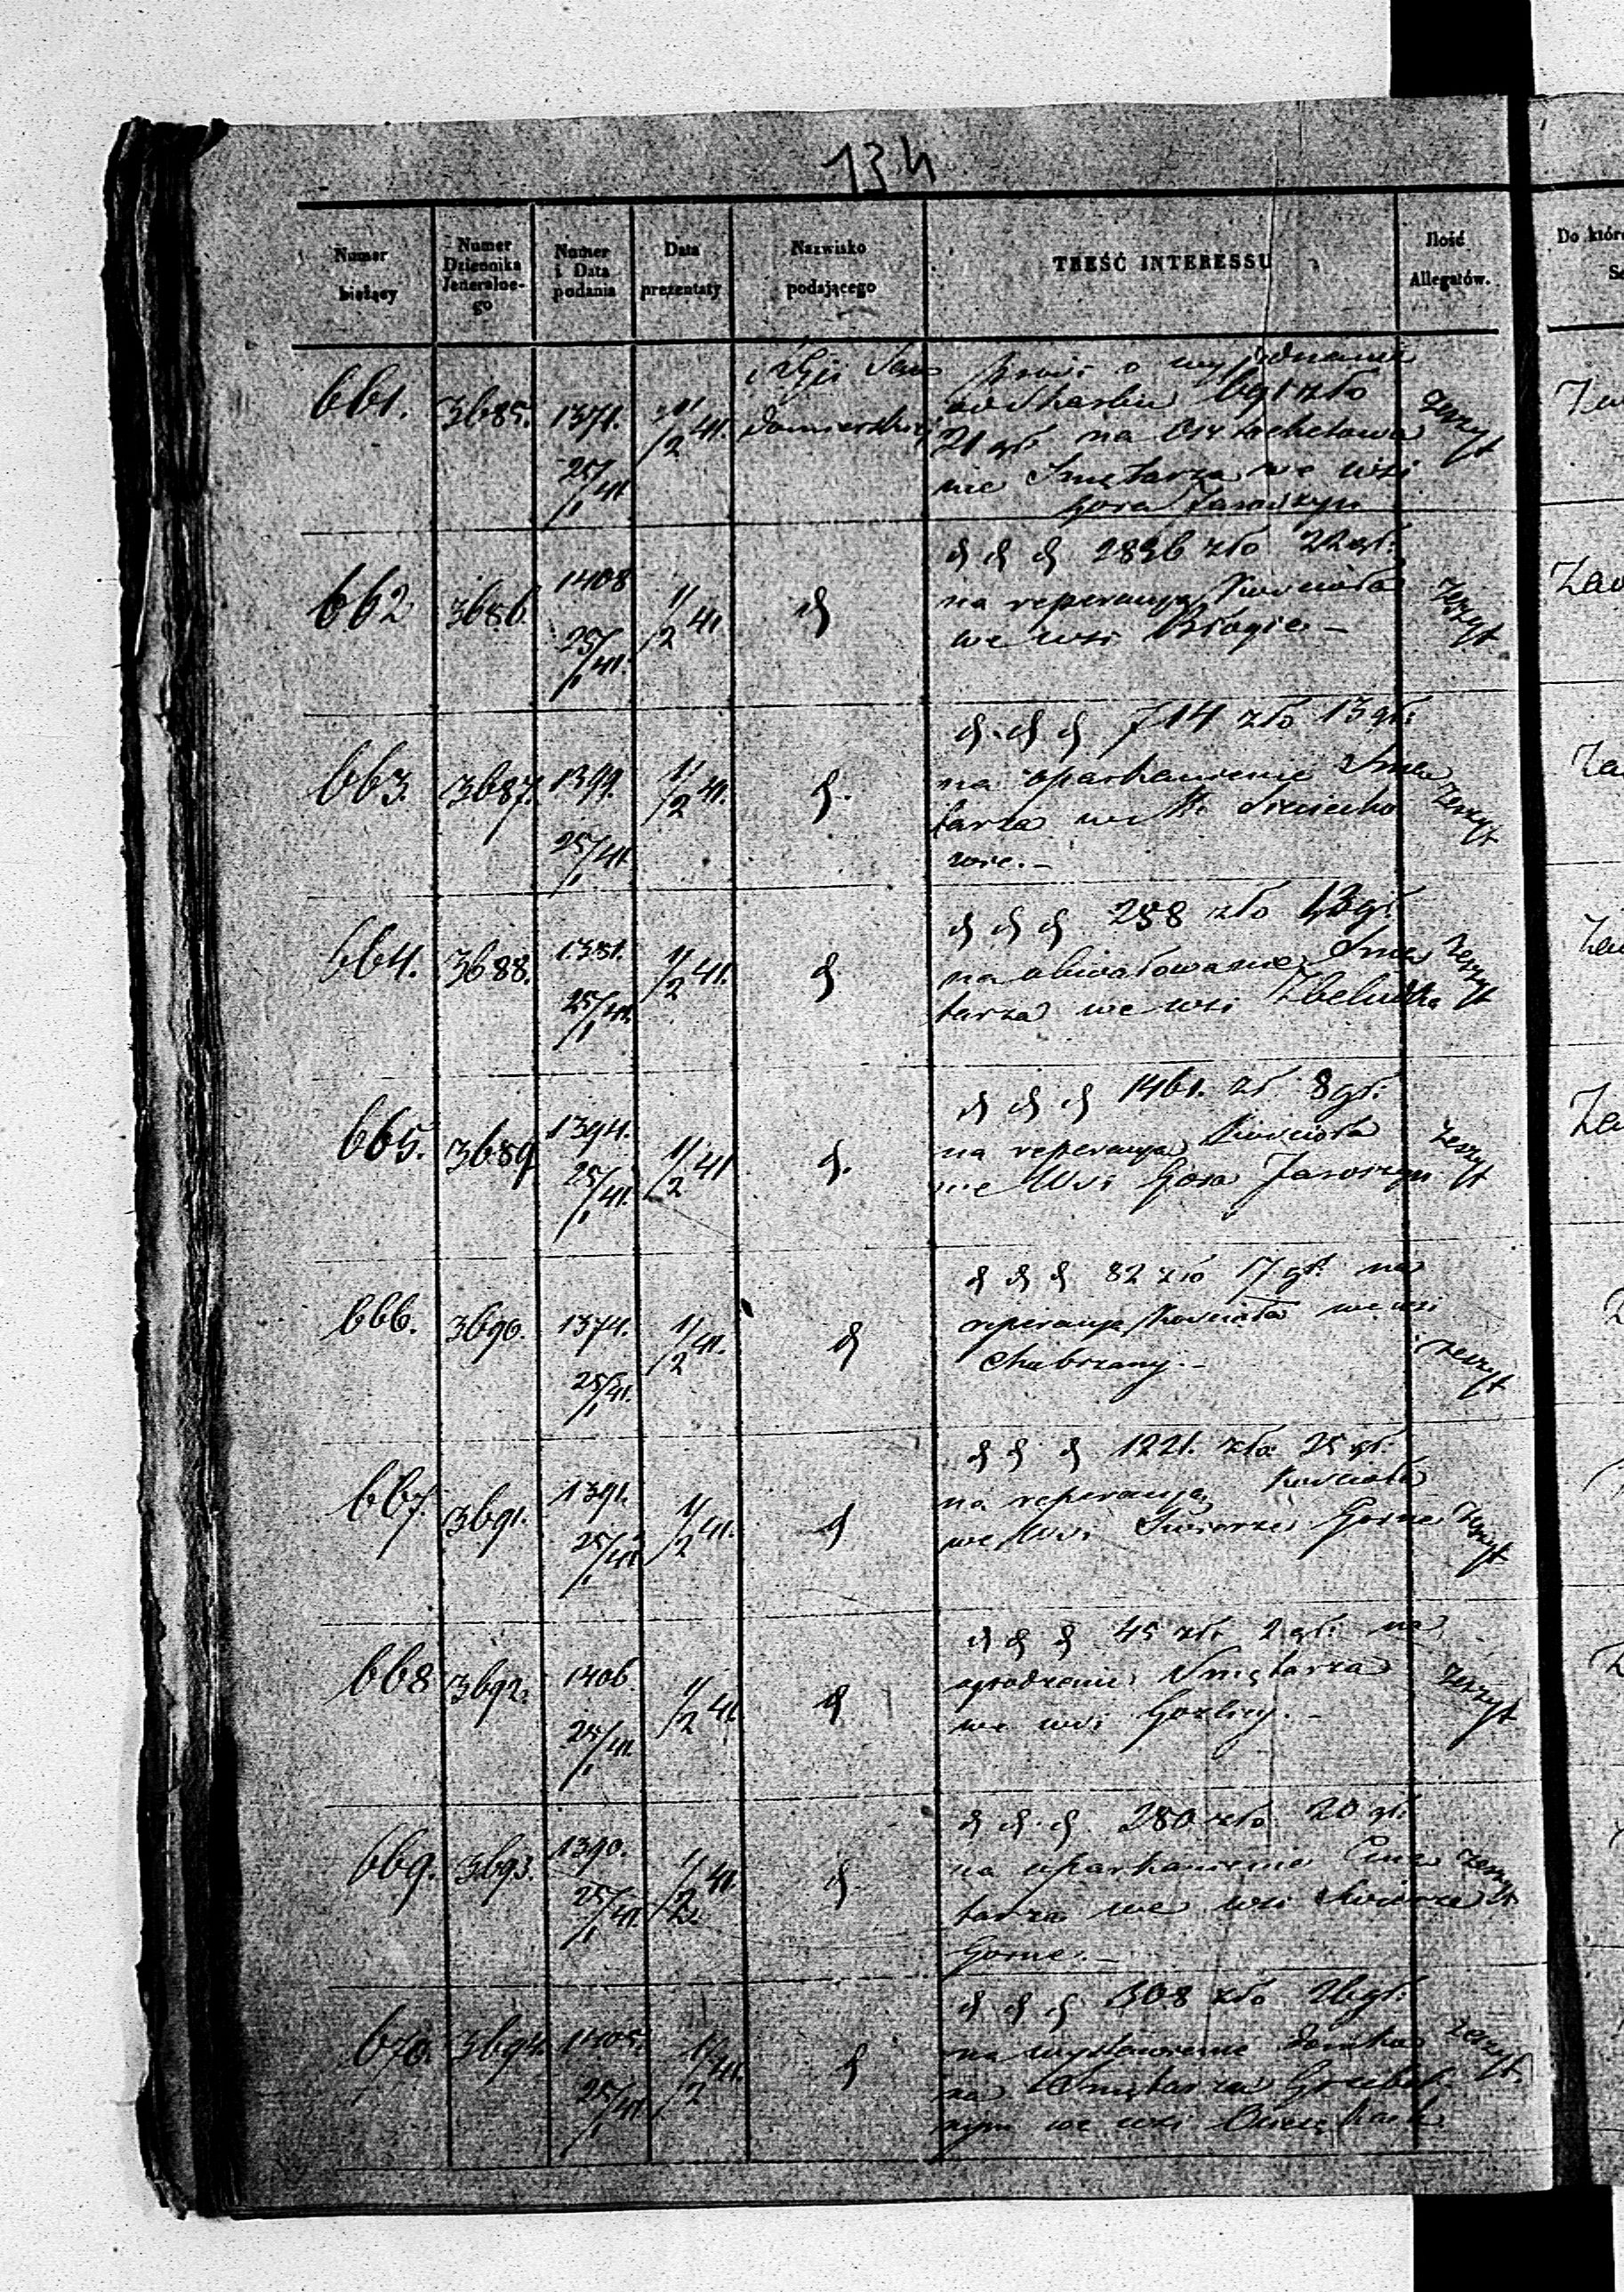 134
Numer bieżący
Numer Dziennika Jeneralnego
Numer i Data podania
Data prezentaty
Nazwisko podającego
TREŚĆ INTERESSU
Ilość Allegatów.
Do któr
661. 3685. 1371. 25/1 41 1/2 41. San
domierski
od Skarbu 691 zło
21 gr: na
nie Smętarza we wsi
Gora Jaroszyn
Zeszyt
662 3686 1408 25/1 41. 1/2 41 d
d d d 2836 zło 22 gr:
na reperacyą Kościoła
we wsi Błogie –
Zeszyt
663. 3687. 1399. 25/1 41. 1/2 41. d.
d. d d 714 zło 13 gr:
na oparkanienie Smę
tarza we W. Sieciecho
wie. –
Zeszyt
664. 3688. 1381. 25/1 41. 1/2 41. d.
d d d 258 zło 13 gr.
na obwałowanie Smę
tarza we wsi Zbelutka
Zeszyt
665. 3689 1394. 25/1 41. 1/2 41 d.
d d d 1461. zł. 8 gr.
na reperacyą Kościoła
we Wsi Gora Jaroszyn
Zeszyt
666. 3690. 1374. 25/1 41. 1/2 41. d
d d d 82 zło 17 gr. na
reperacyą Kościoła we wsi
Chobrzany. –
Zeszyt
667. 3691. 1391. 25/1 41 1/2 41. d
d d d 1221. zło 25 gr.
na reperacyą Kościoła
we Wsi Swierze Gorne
Zeszyt
668 3692. 1406. 25/1 41. 1/2 41. d
d d d 45 zło 2 gr: na
ogrodzenie Smętarza
we wsi Gorlicy. –
Zeszyt
669. 3693. 1390. 25/1 41. 1/2 41. d.
d d. d. 280 zło 20 gr:
na oparkanienie Cmę
tarza we wsi Swierze
Gorne. –
Zeszyt
670. 3694. 1405. 25/1 41 1/2 41. d
d d d 308 zło 26 gr:
na wystawienie domku
na Smętarzu Grzebal
nym we wsi
Zeszyt